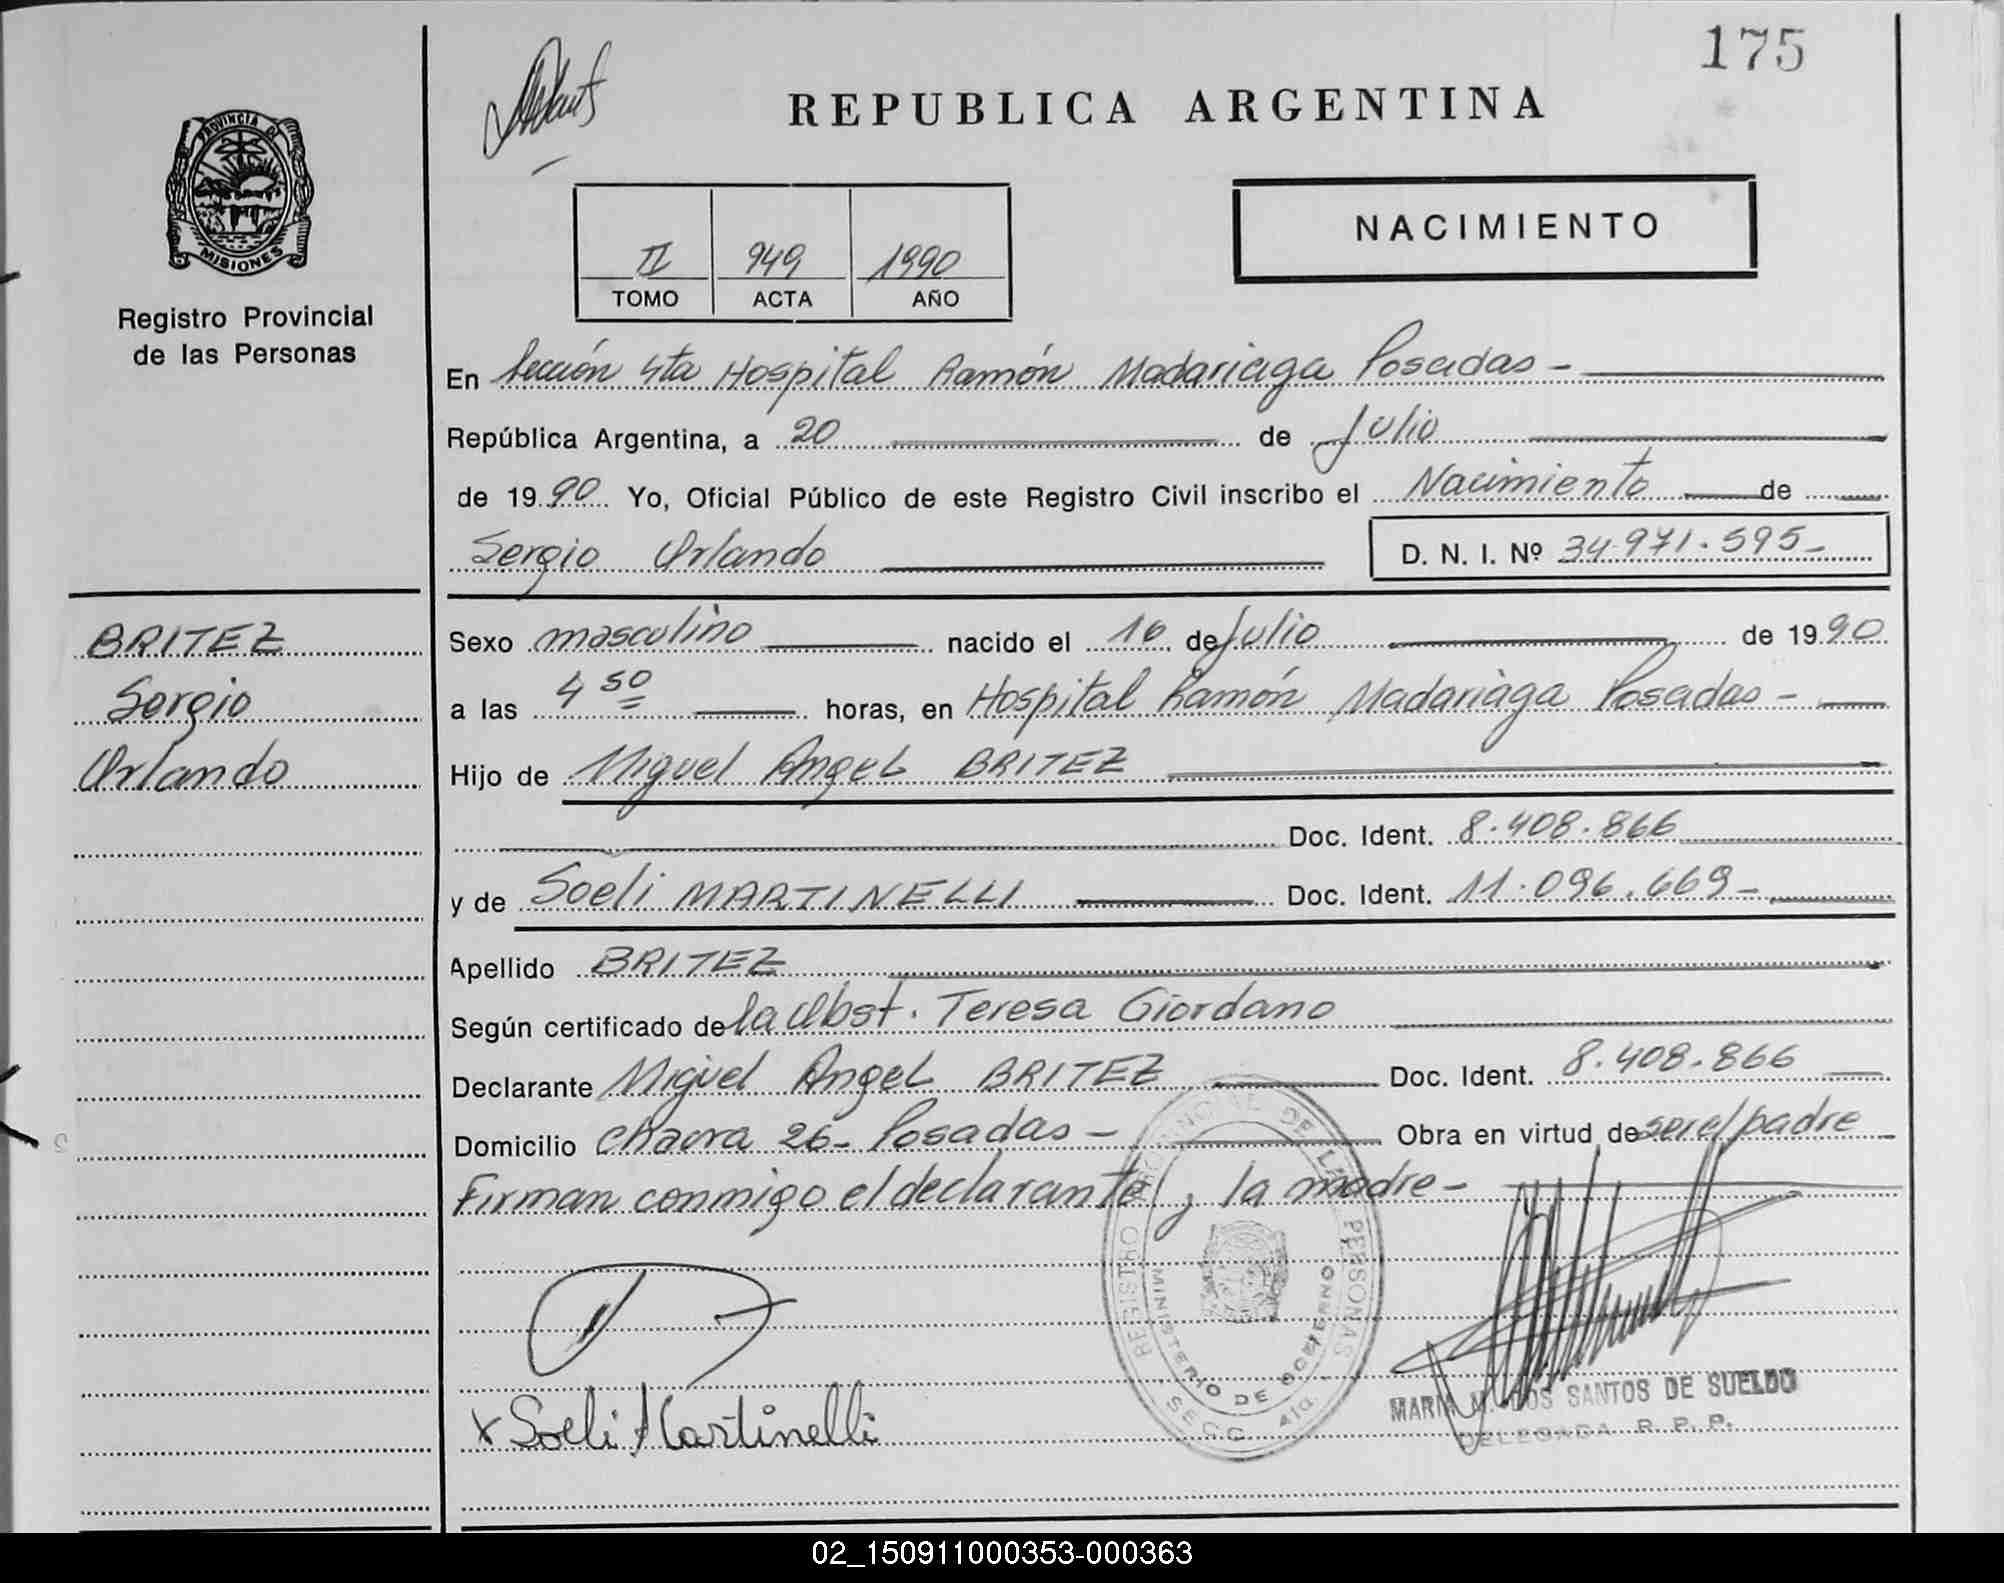 175
REPUBLICA ARGENTINA
PROVINCIA DE
MISIONES
Registro Provincial
de las Personas
NACIMIENTO
II 949 1990
TOMO ACTA AÑO
En Sección 4ta Hospital Ramón Madariaga Posadas -
República Argentina, a 20 de Julio
de 1990 Yo, Oficial Público de este Registro Civil inscribo el Nacimiento de
Sergio Orlando D. N. I. Nº 34.971.595-
BRITEZ
Sergio
Orlando
Sexo masculino nacido el 16 de Julio de 1990
a las 4 50 horas, en Hospital Ramón Madariaga Posadas -
Hijo de Miguel Angel BRITEZ
Doc. Ident. 8.408.866
y de Soeli MARTINELLI Doc. Ident. 11.096.669-
Apellido BRITEZ
Según certificado de la Obst. Teresa Giordano
Declarante Miguel Angel BRITEZ Doc. Ident. 8.408.866
Domicilio Chacra 26- Posadas - Obra en virtud de ser el padre
Firman conmigo el declarante y la madre -
REGISTRO PROVINCIAL DE LAS PERSONAS
MINISTERIO DE GOBIERNO
SECC. 4ta.
x Soeli Martinelli
MARIA M. DOS SANTOS DE SUELDO
DELEGADA R. P. P.
02_150911000353-000363